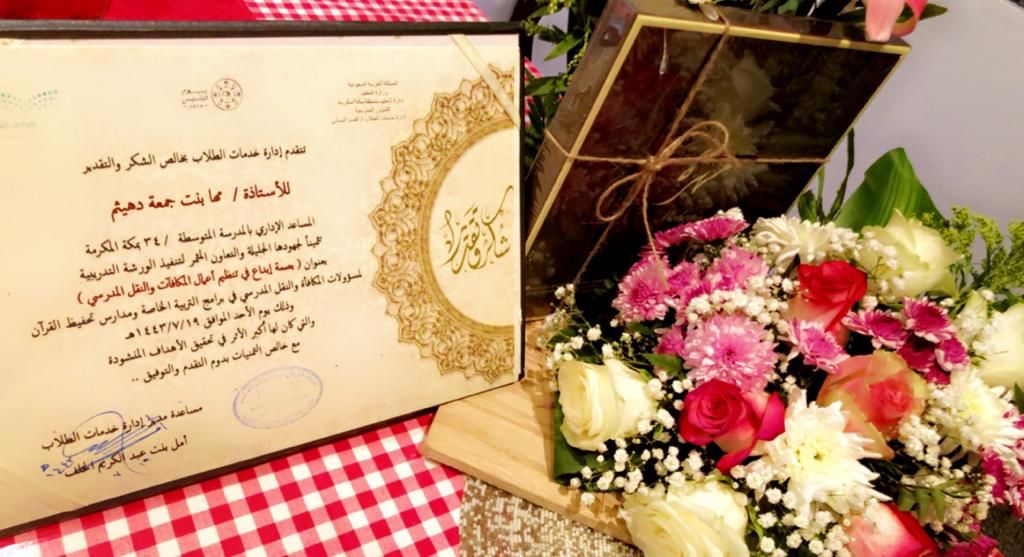 المملكة العربية السعودية
وزارة التعليم
إدارة التعليم بمنطقة مكة المكرمة
الشؤون المدرسية
إدارة خدمات الطلاب / القسم النسائي
يوم التأسيس
تتقدم إدارة خدمات الطلاب بخالص الشكر والتقدير
للأستاذة / مها بنت جمعة دهيثم
المساعد الإداري بالمدرسة المتوسطة / ٣٤ بمكة المكرمة
ثميناً لجهودها الجليلة والتعاون المثمر لتنفيذ الورشة التدريبية
بعنوان ( بصمة إبداع في تنظيم أعمال المكافآت والنقل المدرسي )
لمسؤولات المكافأة والنقل المدرسي في برامج التربية الخاصة ومدارس تحفيظ القرآن
وذلك يوم الأحد الموافق ١٤٤٣/٧/١٩هـ
والتي كان لها أكبر الأثر في تحقيق الأهداف المنشودة
مع خالص التمنيات بدوام التقدم والتوفيق ..
شكر وتقدير
مساعدة مدير إدارة خدمات الطلاب
أمل بنت عبد الكريم الخلف